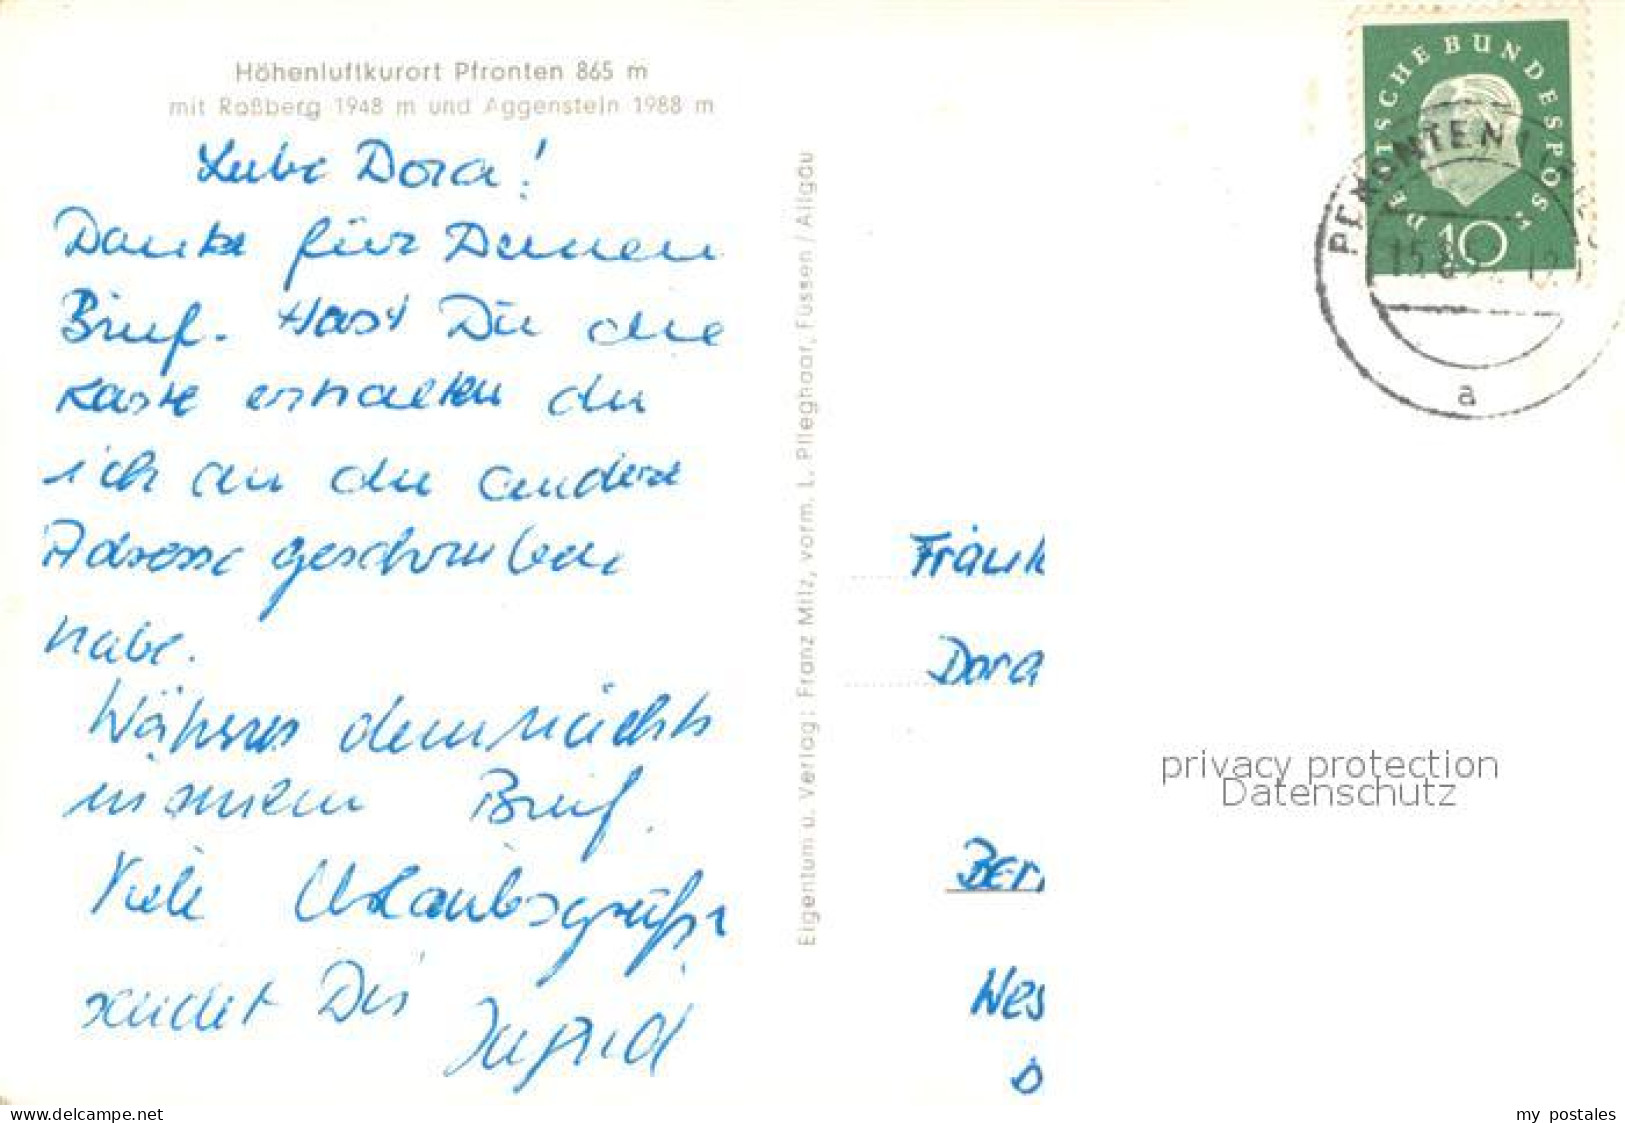 Höhenluftkurort Pfronten 865 m
mit Roßberg 1948 m und Aggenstein 1988 m
Liebe Dora!
Danke für Deinen
Brief. Hast Du die
Karte erhalten die
ich an die andere
Adresse geschrieben
habe.
Näheres demnächst
in einem Brief.
Viele Urlaubsgrüße
sendet Dir
Ingrid
Eigentum u. Verlag: Franz Milz, vorm. L. Pfleghaar, Füssen / Allgäu
DEUTSCHE BUNDESPOST
10
PFRONTEN
15.8.
a
Fräul
Dora
Ber
Wes
D
privacy protection
Datenschutz
www.delcampe.net
my postales